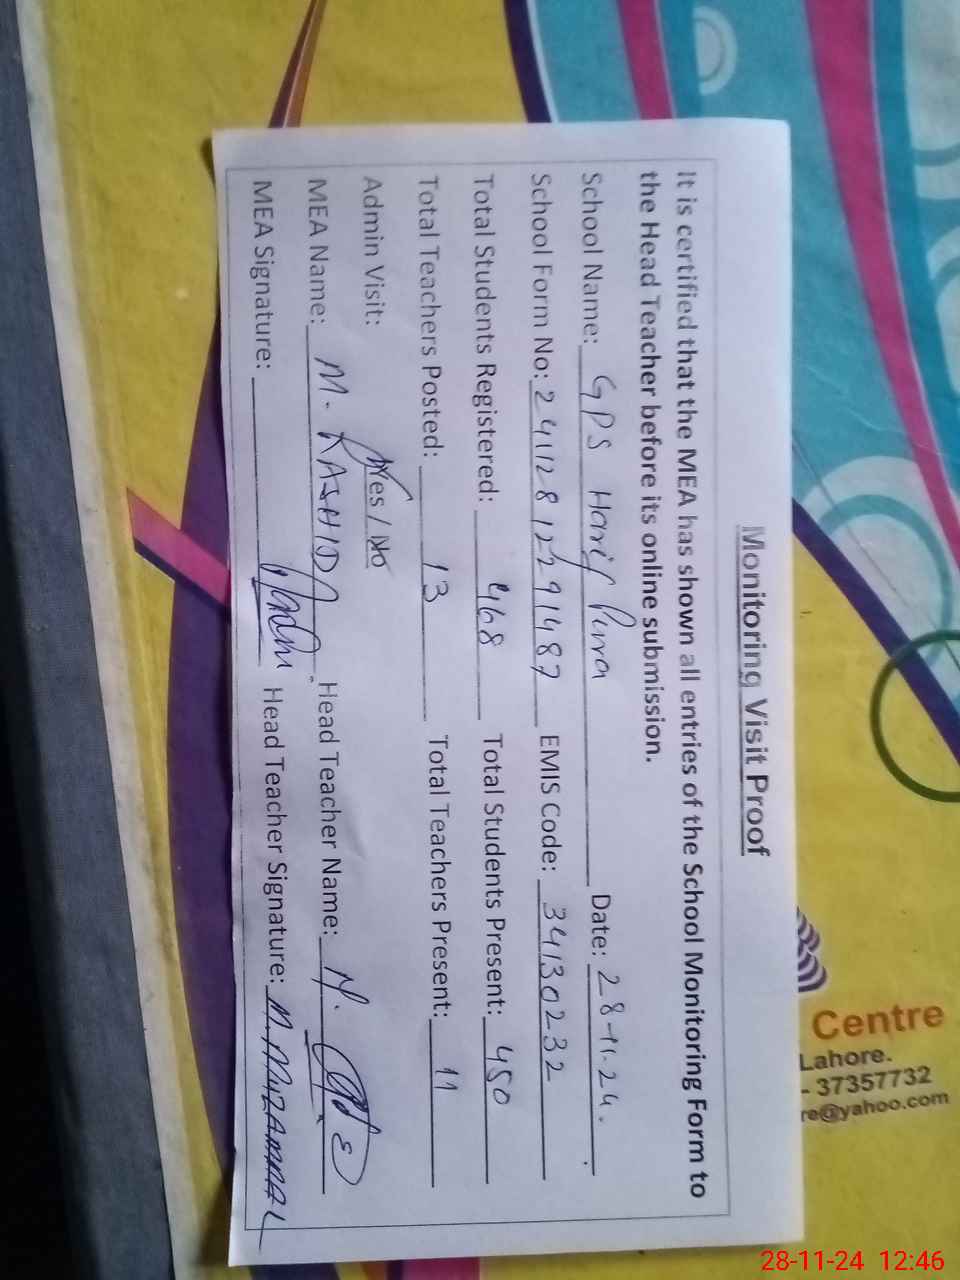 Monitoring Visit Proof
It is certified that the MEA has shown all entries of the School Monitoring Form to
the Head Teacher before its online submission.
School Name: GPS Hanif Pura Date: 28-11-24.
School Form No: 24112812291487 EMIS Code: 34130232
Total Students Registered: 468 Total Students Present: 450
Total Teachers Posted: 13 Total Teachers Present: 11
Admin Visit: Yes / No
MEA Name: M. RASHID Head Teacher Name: M.
MEA Signature: Head Teacher Signature: M. MUZAMMAL
Centre
Lahore.
- 37357732
re@yahoo.com
28-11-24 12:46